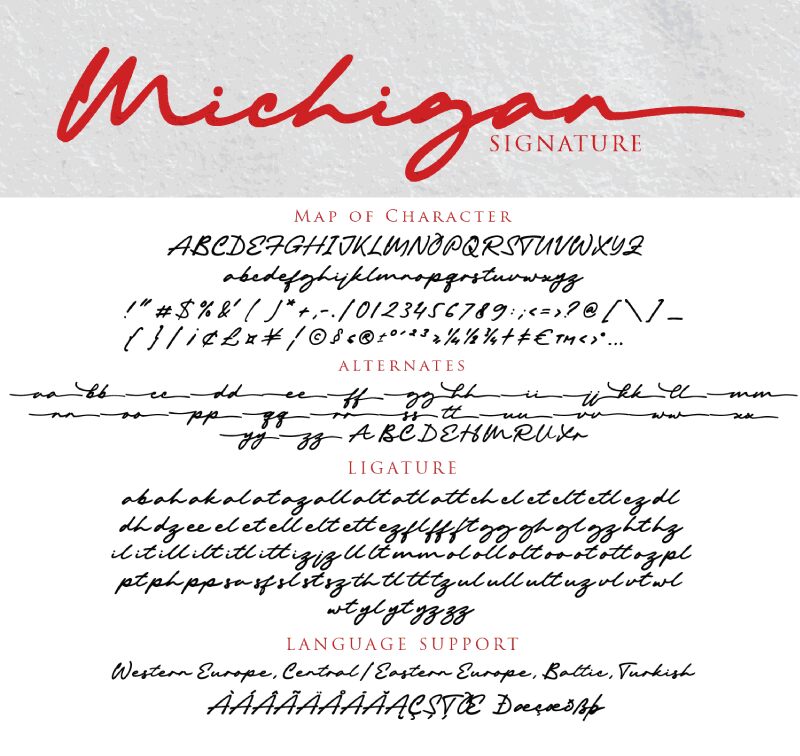 Michigan
SIGNATURE
MAP OF CHARACTER
ABCDEFGHIJKLMNOPQRSTUVWXYZ
abcdefghijklmnopqrstuvwxyz
!"#$%&'()*+,-./0123456789:;<=>?@[\]_
{}|¡¢£¤¥¦©
®±
¼½¾‡€™‹›•…
ALTERNATES
aa bb cc dd ee ff gg hh ii jj kk ll mm
nn oo pp qq rr ss tt uu vv ww xx
yy zz ABCDEHMRUXr
LIGATURE
ab ah ak al at az all alt atl att ch el et elt etl ez dl
dh dz ee el et ell elt ett ez fl ff ft gg gh gl gz ht hz
il it ill ilt itl itt iz jz ll lt mm ol oll olt oo ot ott oz pl
pt ph pp sa sf sl st sz th tl tt tz ul ull ult uz vl vt wl
wt yl yt yz zz
LANGUAGE SUPPORT
Western Europe, Central/Eastern Europe, Baltic, Turkish
ÀÁÂÃÄÅĀĂĄÇŞŢŒ Đœçæðßþ